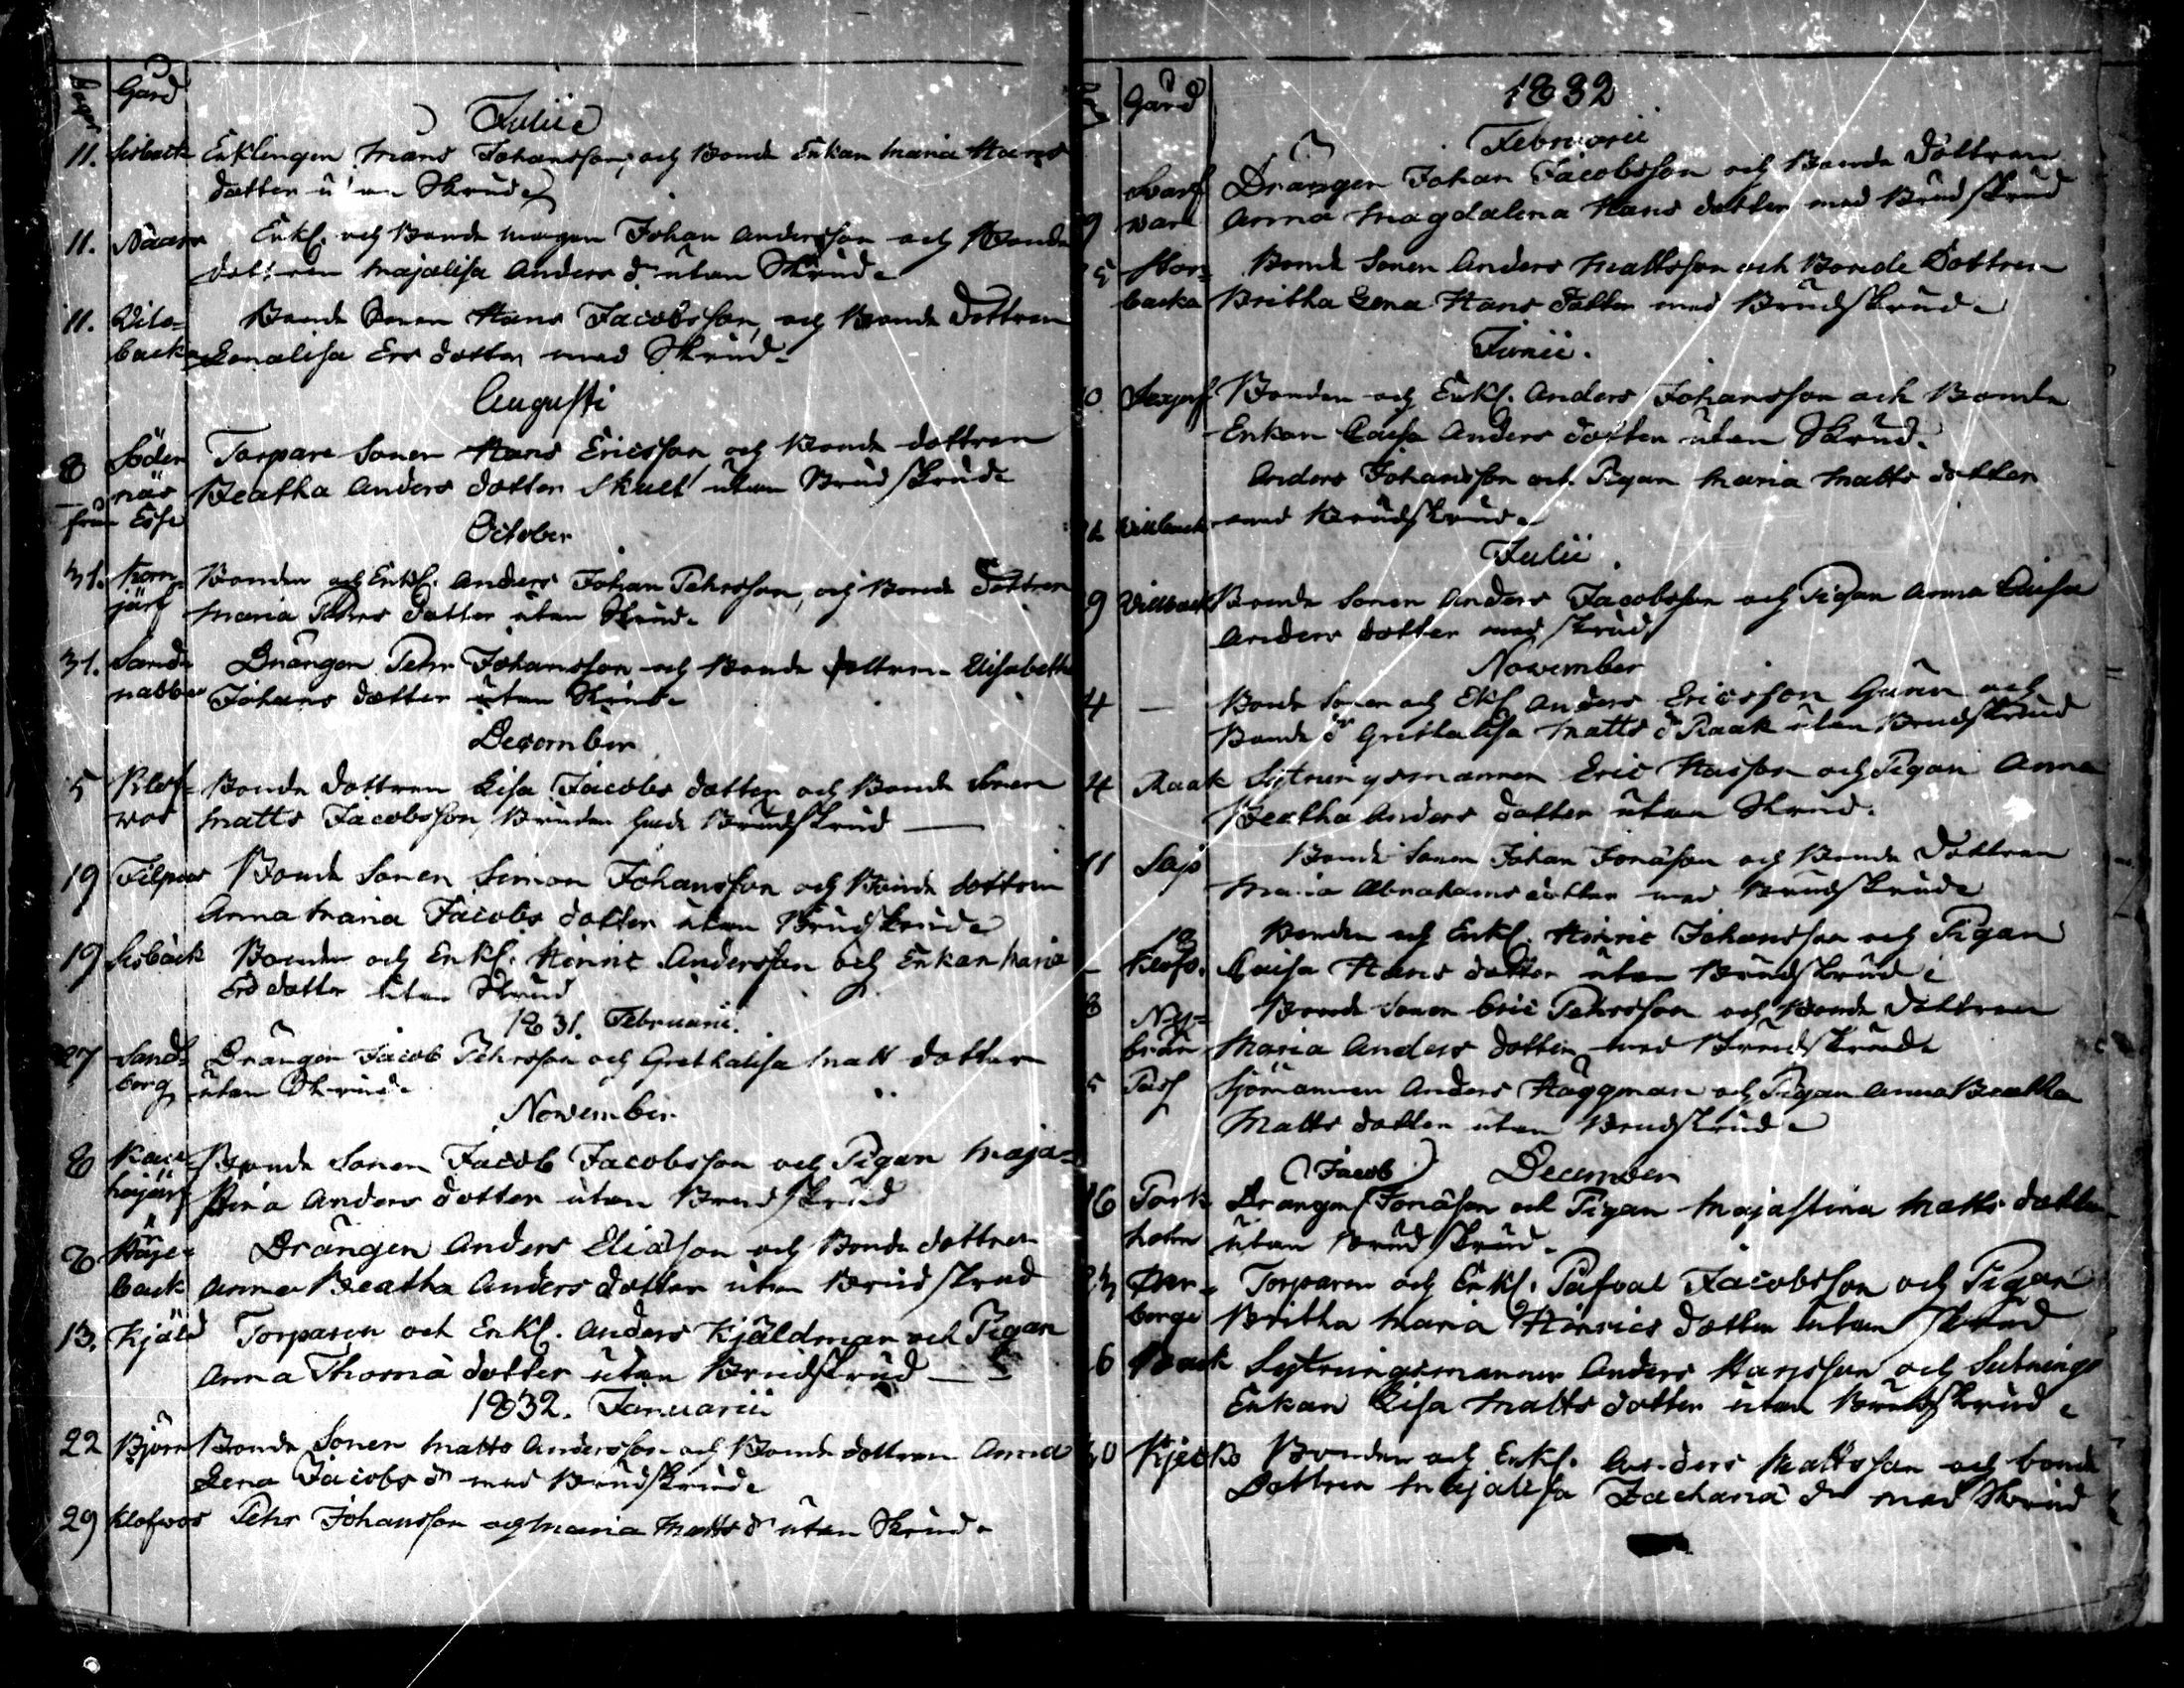 Gård
Julii
11. Sisback Enklingen Mans Johansson, och Bonde Enkan Maria Hans
dotter utan Skrud
11. Nääs Enkl. och Bonde magen Johan Andersson och Bonde
dottren Majalisa Anders d. utan Skrud
11. Vils= Bonde Sonen Hans Jacobsson, och Bonde Dottren
backa Lenalisa Ers dotter med Skrud
Augusti
8 Söder Torpare Sonen Hans Ericsson och Bonde dottren
näs Beatha Anders dotter Skult utan Brudskrud
från Esse
October
31. Korn= Bonden och Enkl. Anders Johan Pehrsson, och Bonde Dottren
järf Maria Pehrs dotter utan Skrud
31. Sand Drängen Pehr Johansson och Bonde dottren Elisabeth
nabba Johans dotter utan Skrud
December
5 Klof= Bonde dottren Lisa Jacobs dotter och Bonde Sonen
wos Matts Jacobsson, Bruden hade Brudskrud
19 Filpus Bonde Sonen Simon Johansson och Bonde dottren
Anna Maria Jacobs dotter utan Brudskrud
19 Sisback Bonden och Enkl. Hinric Andersson och Enkan Maria
Ers dotter utan Skrud
1831. Februarii.
27 Sand= Drängen Jacob Pehrsson och Grethalisa Matt dotter
berg utan Skrud
November
8 Bonde Sonen Jacob Jacobsson och Pigan Maja=
Stina Anders dotter utan Brudskrud
8 Drängen Anders Eliasson och Bonde dottren
back Anna Beatha Anders dotter utan Brudskrud
13. Kjäld Torparen och Enkl. Anders Kjäldman och Pigan
Anna Thoma dotter utan Brudskrud
1832. Januarii
22 Björn Bonde Sonen Matts Andersson och Bonde dottren Anna
Lena Jacobs dr med Brudskrud
29 Klofwos Pehr Johansson och Maria Matts dr utan Skrud
Gård
1832
Februarii
Svarf Drängen Johan Jacobsson och Bonde dottren
9 Anna Magdalena Hans dotter med Brudskrud
5 Stor= Bonde Sonen Anders Mattsson och Bonde Dottren
backa Britha Lena Hans Dotter med Brudskrud
Junii.
0 Bonden och Enkl. Anders Johansson och Bonde
Enkan Caisa Anders dotter utan Skrud.
Anders Johansson och Pigan Maria Matts dotter
med Brudskrud
Julii
9 Villback Bonde Sonen Anders Jacobsson och Pigan Anna Caisa
Anders dotter med Skrud
November
4 — Bonde Sonen och Ekl Anders Ericsson och
Bonde dr Grethalisa Matts d Raak utan Brudskrud
4 Raak Sytningsmannen Eric Hansson och Pigan Anna
Beatha Anders dotter utan Skrud.
11 Bonde Sonen Johan Jonasson och Bonde dottren
Maria Abrahams dotter med Brudskrud
Bonden och Enkl. Hinric Johansson och Pigan
Klofs. Caisa Hans dotter utan Brudskrud
8 Ny= Bonde Sonen Eric Pehrsson och Bonde dottren
brån Maria Anders dotter med Brudskrud
5 Sjömannen Anders Häggman och Pigan Anna Beatha
Matts dotter utan Brudskrud
(Jacob) December
16 Tork Drangen Jonasson och Pigan Majastina Matts dotter
holm utan Brudskrud.
Torparen och Enkl. Pafval Jacobsson och Pigan
berge Britha Maria Hinrics dotter utan Skrud
6 Back Sytningsmannen Anders Hansson och Sytnings
Enkan Lisa Matts dotter utan Brudskrud
30 Bonden och Enkl. Anders Mattsson och bonde
Dottren Majalisa Zacharia dr med Skrud